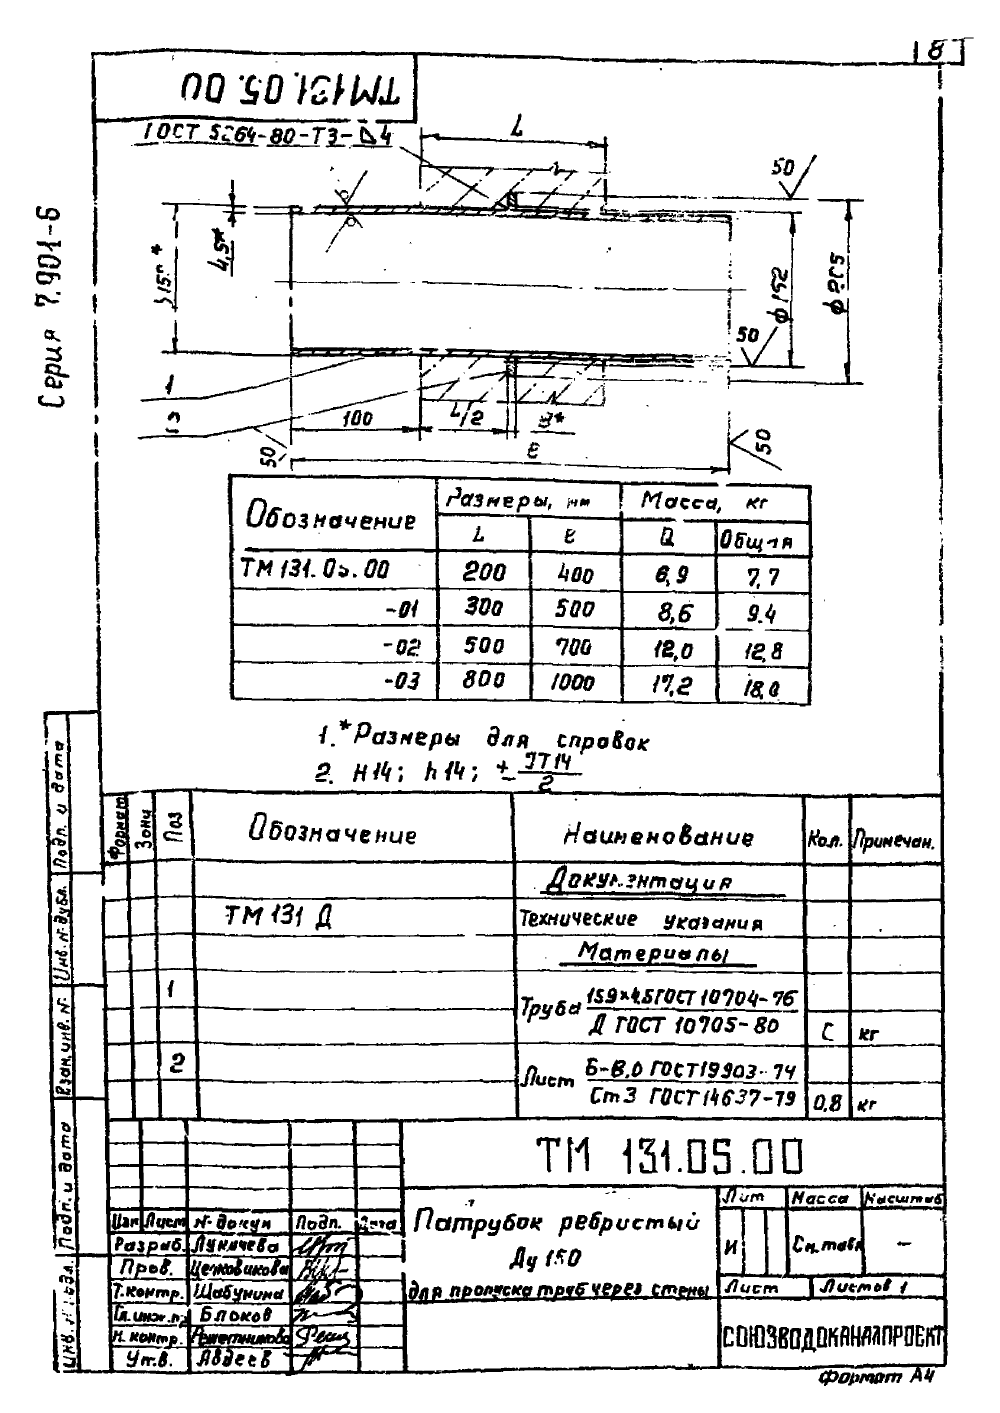 8
ТМ131.05.00
ГОСТ 5264-80-Т3-⊿4
L
50
Серия 7.901-6
4,5*
ф205
50
1
2
100
L/2
50
ℓ
50
Обозначение Размеры, мм Масса, кг
L ℓ Q Общая
ТМ131.05.00 200 400 6,9 7,7
-01 300 500 8,6 9.4
-02 500 700 12,0 12,8
-03 800 1000 17,2 18,0
1.*Размеры для справок
2. Н14; h14; ± JT14/2
Формат Зона Поз Обозначение Наименование Кол. Примечан.
Документация
ТМ 131 Д Технические указания
Материалы
1 Труба 159×4,5 ГОСТ 10704-76
Д ГОСТ 10705-80 кг
2 Лист Б-8.0 ГОСТ 19903-74
Ст3 ГОСТ 14637-79 0,8 кг
Подп. и дата
Инв. № дубл.
Взам. инв. №
Подп. и дата
Инв. № подл.
ТМ 131.05.00
Изм Лист № докум Подп. Дата
Разраб. Лукичева
Пров. Целовикова
Т.контр. Шабунина
Гл. инж. пр Блоков
Н. контр.
Утв. Авдеев
Патрубок ребристый
Ду 150
для пропуска труб через стены
Лит Масса Масштаб
И См. табл –
Лист Листов 1
СОЮЗВОДОКАНАЛПРОЕКТ
Формат А4